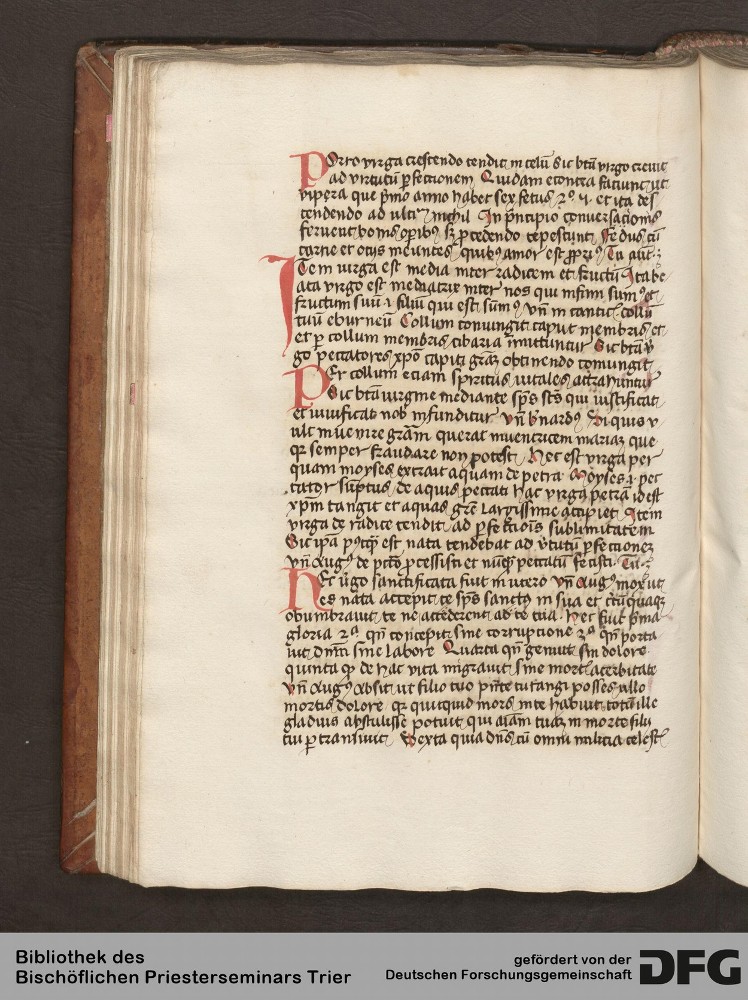 Porro virga crescendo tendit in celū Sic btā virgo creuit
ad virtutū ꝑfectionem Quidam econtra faciunt ut
vipera que pͥmo anno habet sex fetus 2º v et ita des
cendendo ad ultimū nichil In pͥncipio conuersacionis
feruent bonis oꝑibꝰ sꝫ ꝓcedendo tepescunt fedus cū
carne et ociis meuntes quibꝰ amor est ꝓpriꝰ Tu aut
Item uirga est media inter radicem et fructū Ita be
ata virgo est mediatrix inter nos qui infimi sumꝰ et
fructum suū ı filiū qui est sūmꝰ vn̄ in cantic collū
tuū eburneū Collum coniungit caput membris et
et ꝑ collum membris cibaria īmittuntur Sic btā v̄
go peccatores xp̄o capiti grāꝫ obtinendo coniungit
Per collum eciam spiritus uitales attrahuntur
Sic btā uirgine mediante sp̄s sc̄s qui iustificat
et uiuificat nob infunditur vn̄ b̄nardꝰ Si quis v
ult inuenire grām querat inuentricem mariaꝫ que
qꝛ semper fraudare non potest Hec est virga per
quam moyses extraxit aquam de petra Moyses ı pec
cator sūptus de aquis peccati hac virga petrā id est
xp̄m tangit et aquas grē largissime accipiet Item
virga de radice tendit ad ꝑfectiōis sublimitatem
Sic ip̄a pꝰqꝫ est nata tendebat ad v̄tutū ꝑfectioneꝫ
vn̄ Augꝰ de pctō ꝓcessisti et nūqꝫ peccatū fecisti Tu
Hec v̄go sanctificata fuit in utero vn̄ Augꝰ mox ut
es nata accepit te sp̄s sanctꝰ in sua et c̄tūquaqꝫ
obumbrauit te ne accederent ad te tua hec fuit pͥma
gloria 2ª qn̄ concepit sine corruptione 3ª qn̄ porta
uit dn̄m sine labore Quarta qn̄ genuit sin dolore
quinta qꝫ de hac vita migrauit sine mort acerbitate
vn̄ Augꝰ absit ut filio tuo pn̄te tu tangi posses ullo
mortis dolore qꝛ quicquid mors in te habuit totū ille
gladius abstulisse potuit qui aīam tuaꝫ in morte filii
tui ꝑtransiuit Sexta quia dn̄s cū omni militia celest
Bibliothek des
Bischöflichen Priesterseminars Trier
gefördert von der
Deutschen Forschungsgemeinschaft DFG